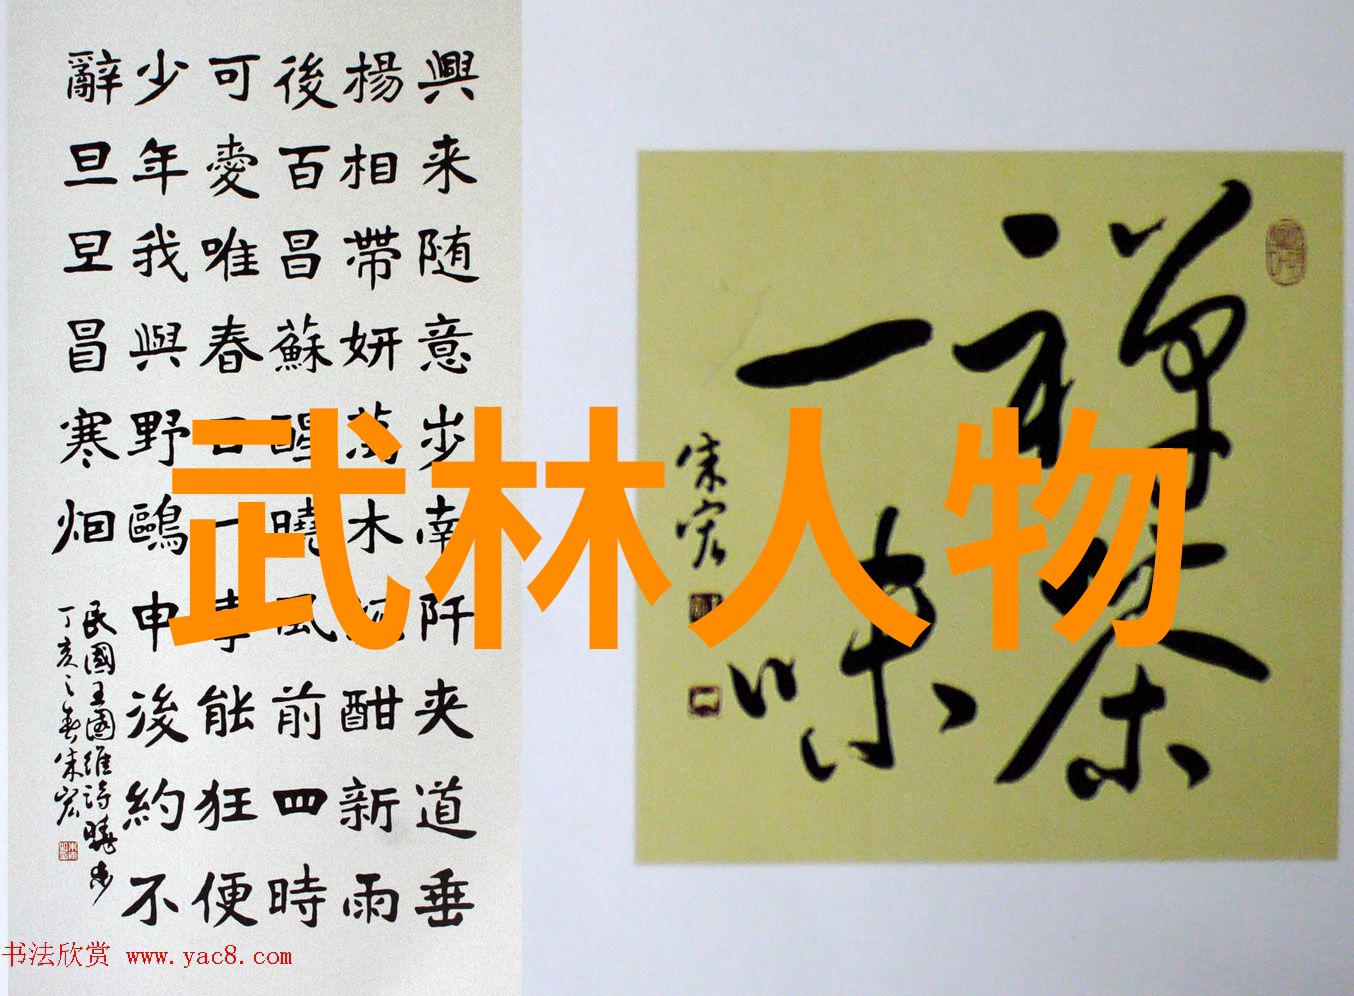 興来随意步南阡夹道垂
楊相帶妍萬木沉酣新雨
後百昌蘇醒曉風前四時
可愛唯春日一事能狂便
少年我與野鷗申後約不
辭旦旦冒寒烟
民國王國維詩曉步
丁亥之春朱宏
禪茶
一味
朱宏
武林人物
书法欣赏 www.yac8.com